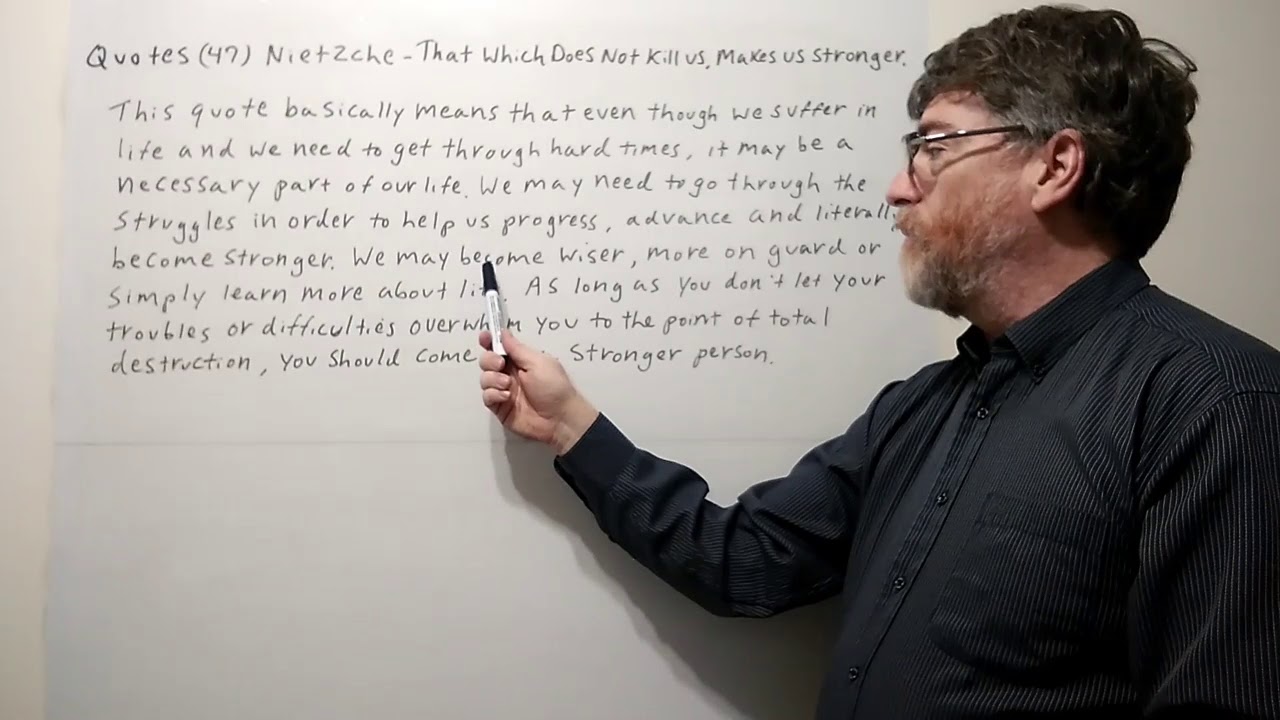 Quotes (47) Nietzche - That Which Does Not Kill us, Makes us Stronger.
This quote basically means that even though we suffer in
life and we need to get through hard times, it may be a
necessary part of our life. We may need to go through the
struggles in order to help us progress, advance and literall
become stronger. We may become wiser, more on guard or
simply learn more about li . As long as you don't let your
troubles or difficulties overwh m you to the point of total
destruction, you should come stronger person.